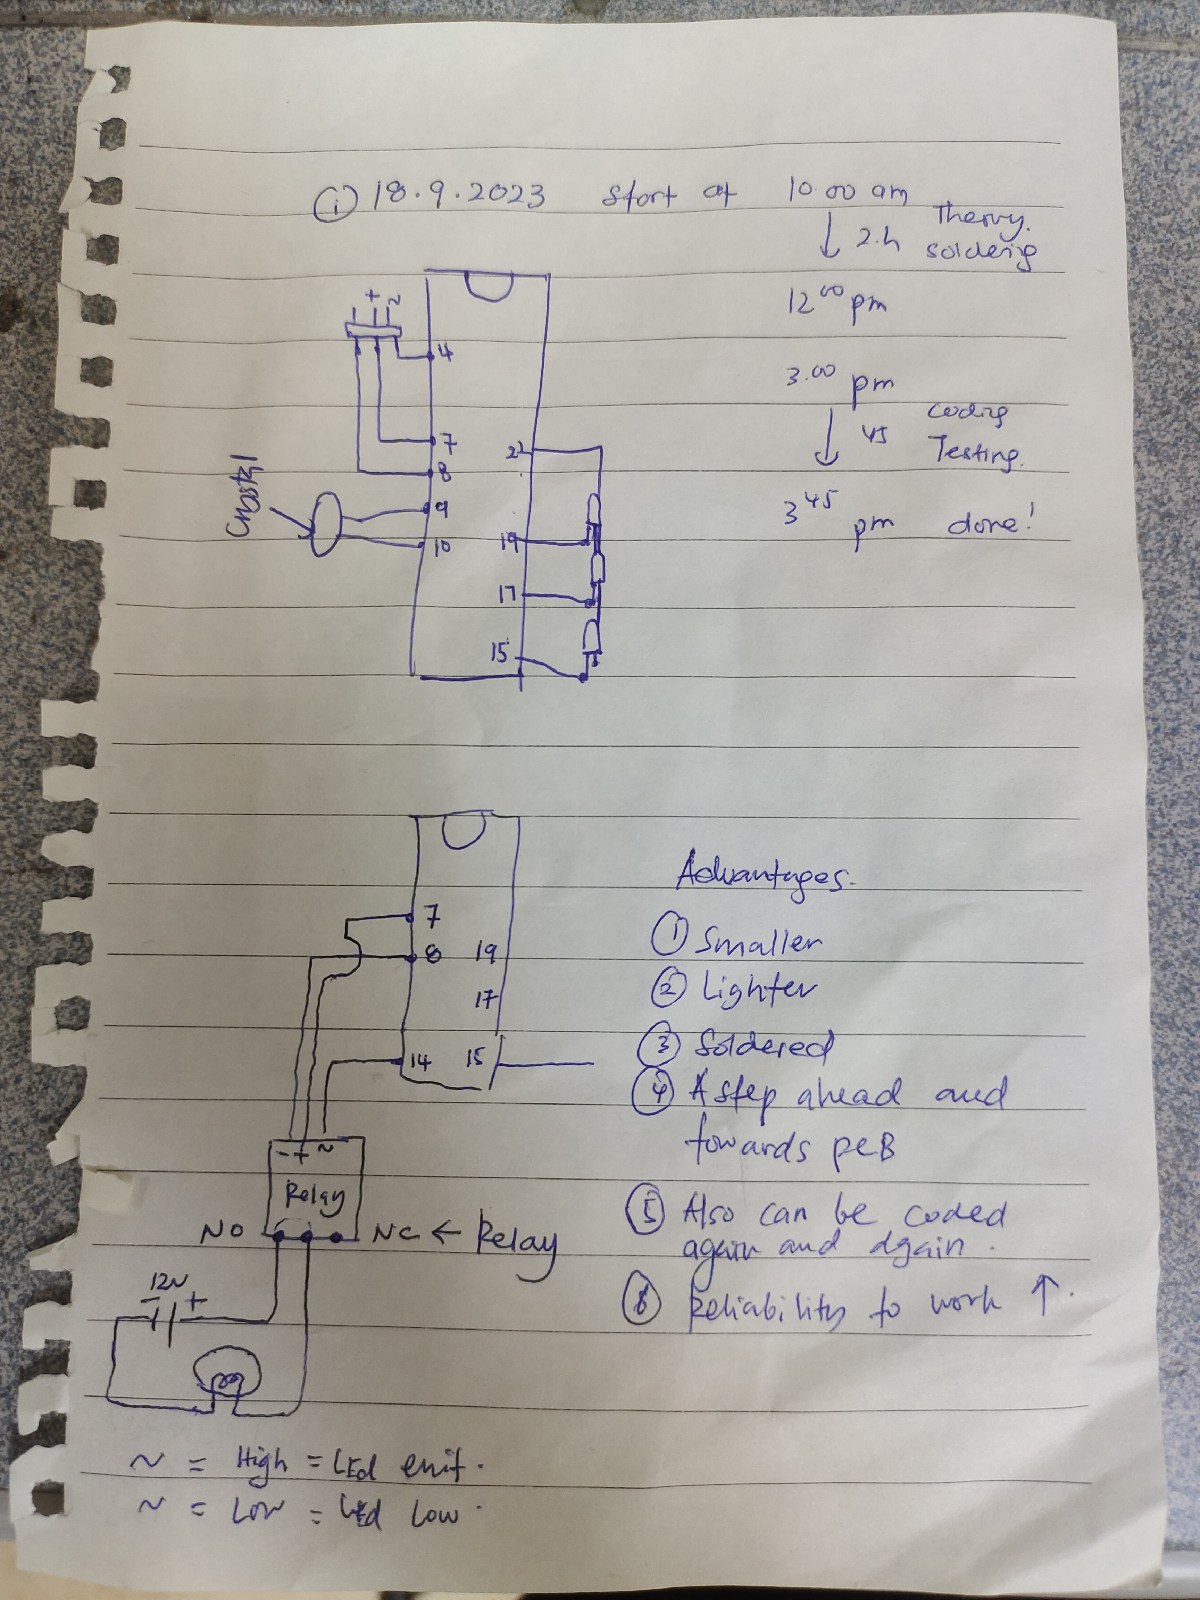 ① 18.9.2023 start at 10.00 am
↓ 2.h Theory.
soldering
12⁰⁰ pm
3.⁰⁰ pm
↓ 45 coding
Testing.
3⁴⁵ pm done!
+ ~
4
7
8
9
10
21
19
17
15
7
8 19
17
14 15
- + ~
Relay
NO NC ← Relay
12V
- +
~ = High = LEd emit.
~ = Low = Led Low.
Advantages.
① Smaller
② Lighter
③ Soldered
④ A step ahead and
towards pcB
⑤ Also can be coded
again and again.
⑥ Reliability to work ↑.